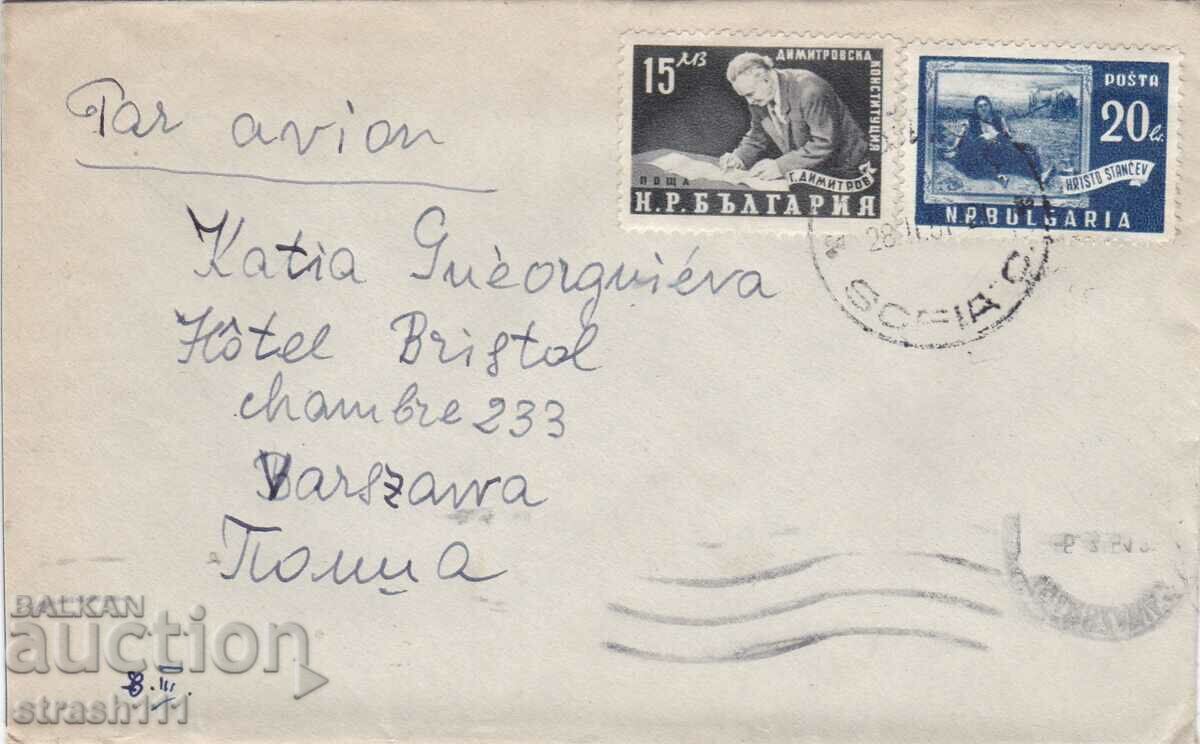 Par avion
15 ЛВ
ДИМИТРОВСКА
КОНСТИТУЦИЯ
ПОЩА
Г. ДИМИТРОВ
Н.Р.БЪЛГАРИЯ
POŠTA
20 lv.
HRISTO STANČEV
N.R.BULGARIA
SOFIA
Katia Guéorguiéva
Hôtel Bristol
chambre 233
Warszawa
Полша
8.III.
BALKAN
auction
strash111